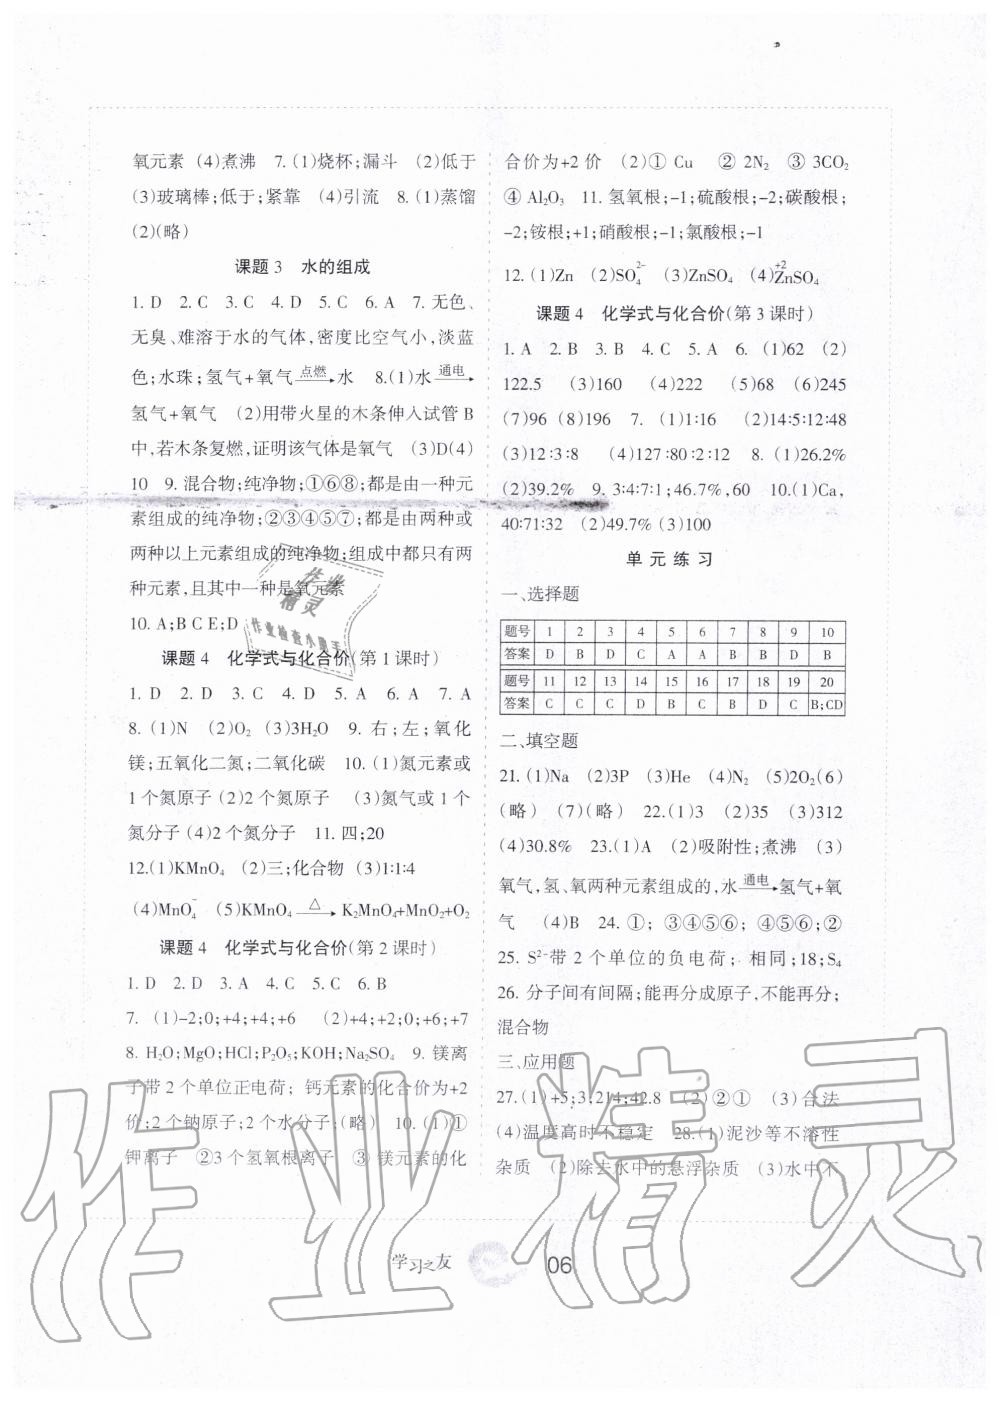 氧元素 (4)煮沸 7. (1)烧杯;漏斗 (2)低于
(3)玻璃棒;低于;紧靠 (4)引流 8. (1)蒸馏
(2)(略)
课题 3 水的组成
1. D 2. C 3. C 4. D 5. C 6. A 7. 无色、
无臭、难溶于水的气体,密度比空气小,淡蓝
色;水珠;氢气+氧气 点燃→ 水 8.(1)水 通电→
氢气+氧气 (2)用带火星的木条伸入试管 B
中,若木条复燃,证明该气体是氧气 (3)D(4)
10 9. 混合物;纯净物;①⑥⑧;都是由一种元
素组成的纯净物;②③④⑤⑦;都是由两种或
两种以上元素组成的纯净物;组成中都只有两
种元素,且其中一种是氧元素
10. A;B C E;D
课题 4 化学式与化合价(第 1 课时)
1. D 2. D 3. C 4. D 5. A 6. A 7. A
8. (1)N (2)O₂ (3)3H₂O 9. 右;左;氧化
镁;五氧化二氮;二氧化碳 10. (1)氮元素或
1 个氮原子 (2)2 个氮原子 (3)氮气或 1 个
氮分子 (4)2 个氮分子 11. 四;20
12.(1)KMnO₄ (2)三;化合物 (3)1:1:4
(4)MnO₄⁻ (5)KMnO₄ △→ K₂MnO₄+MnO₂+O₂
课题 4 化学式与化合价(第 2 课时)
1. D 2. D 3. A 4. C 5. C 6. B
7. (1)-2;0;+4;+4;+6 (2)+4;+2;0;+6;+7
8. H₂O;MgO;HCl;P₂O₅;KOH;Na₂SO₄ 9. 镁离
子带 2 个单位正电荷; 钙元素的化合价为+2
价;2 个钠原子;2 个水分子;(略) 10. (1)①
钾离子 ②3 个氢氧根离子 ③ 镁元素的化
合价为+2 价 (2)① Cu ② 2N₂ ③ 3CO₂
④ Al₂O₃ 11. 氢氧根;-1;硫酸根;-2;碳酸根;
-2;铵根;+1;硝酸根;-1;氯酸根;-1
12. (1)Zn (2)SO₄²⁻ (3)ZnSO₄ (4)+2ZnSO₄
课题 4 化学式与化合价(第 3 课时)
1. A 2. B 3. B 4. C 5. A 6. (1)62 (2)
122.5 (3)160 (4)222 (5)68 (6)245
(7)96 (8)196 7. (1)1:16 (2)14:5:12:48
(3)12:3:8 (4)127:80:2:12 8. (1)26.2%
(2)39.2% 9. 3:4:7:1;46.7%,60 10.(1)Ca,
40:71:32 (2)49.7% (3)100
单元练习
一、选择题
题号 1 2 3 4 5 6 7 8 9 10
答案 D B D C A A B B D B
题号 11 12 13 14 15 16 17 18 19 20
答案 C C C D B C B D C B;CD
二、填空题
21. (1)Na (2)3P (3)He (4)N₂ (5)2O₂ (6)
(略) (7)(略) 22.(1)3 (2)35 (3)312
(4)30.8% 23.(1)A (2)吸附性;煮沸 (3)
氧气,氢、氧两种元素组成的,水 通电→ 氢气+氧
气 (4)B 24. ①; ③④⑤⑥; ④⑤⑥;②
25. S²⁻带 2 个单位的负电荷; 相同;18;S₄
26. 分子间有间隔;能再分成原子,不能再分;
混合物
三、应用题
27.(1)+5;3;214;42.8 (2)②① (3)合法
(4)温度高时不稳定 28.(1)泥沙等不溶性
杂质 (2)除去水中的悬浮杂质 (3)水中不
学习之友
06
作业精灵
作业检查小助手
作业精灵